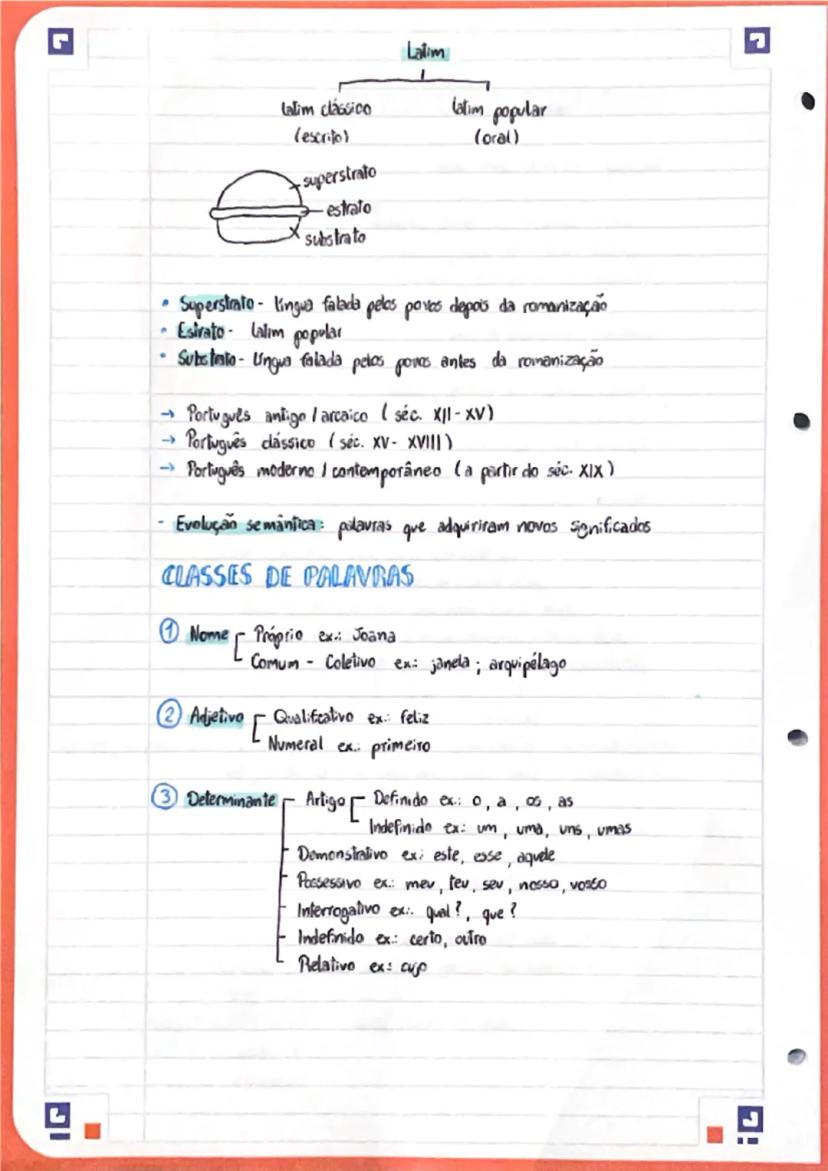 Latim
latim clássico latim popular
(escrito) (oral)
superstrato
estrato
substrato
• Superstrato - língua falada pelos povos depois da romanização
• Estrato - latim popular
• Substrato - língua falada pelos povos antes da romanização
→ Português antigo / arcaico (séc. XII - XV)
→ Português clássico (séc. XV - XVIII)
→ Português moderno / contemporâneo (a partir do séc. XIX)
- Evolução semântica: palavras que adquiriram novos significados
CLASSES DE PALAVRAS
① Nome Próprio ex.: Joana
Comum - Coletivo ex.: janela ; arquipélago
② Adjetivo Qualificativo ex.: feliz
Numeral ex.: primeiro
③ Determinante Artigo Definido ex.: o, a, os, as
Indefinido ex: um, uma, uns, umas
Demonstrativo ex: este, esse, aquele
Possessivo ex.: meu, teu, seu, nosso, vosso
Interrogativo ex.: qual?, que?
Indefinido ex.: certo, outro
Relativo ex: cujo